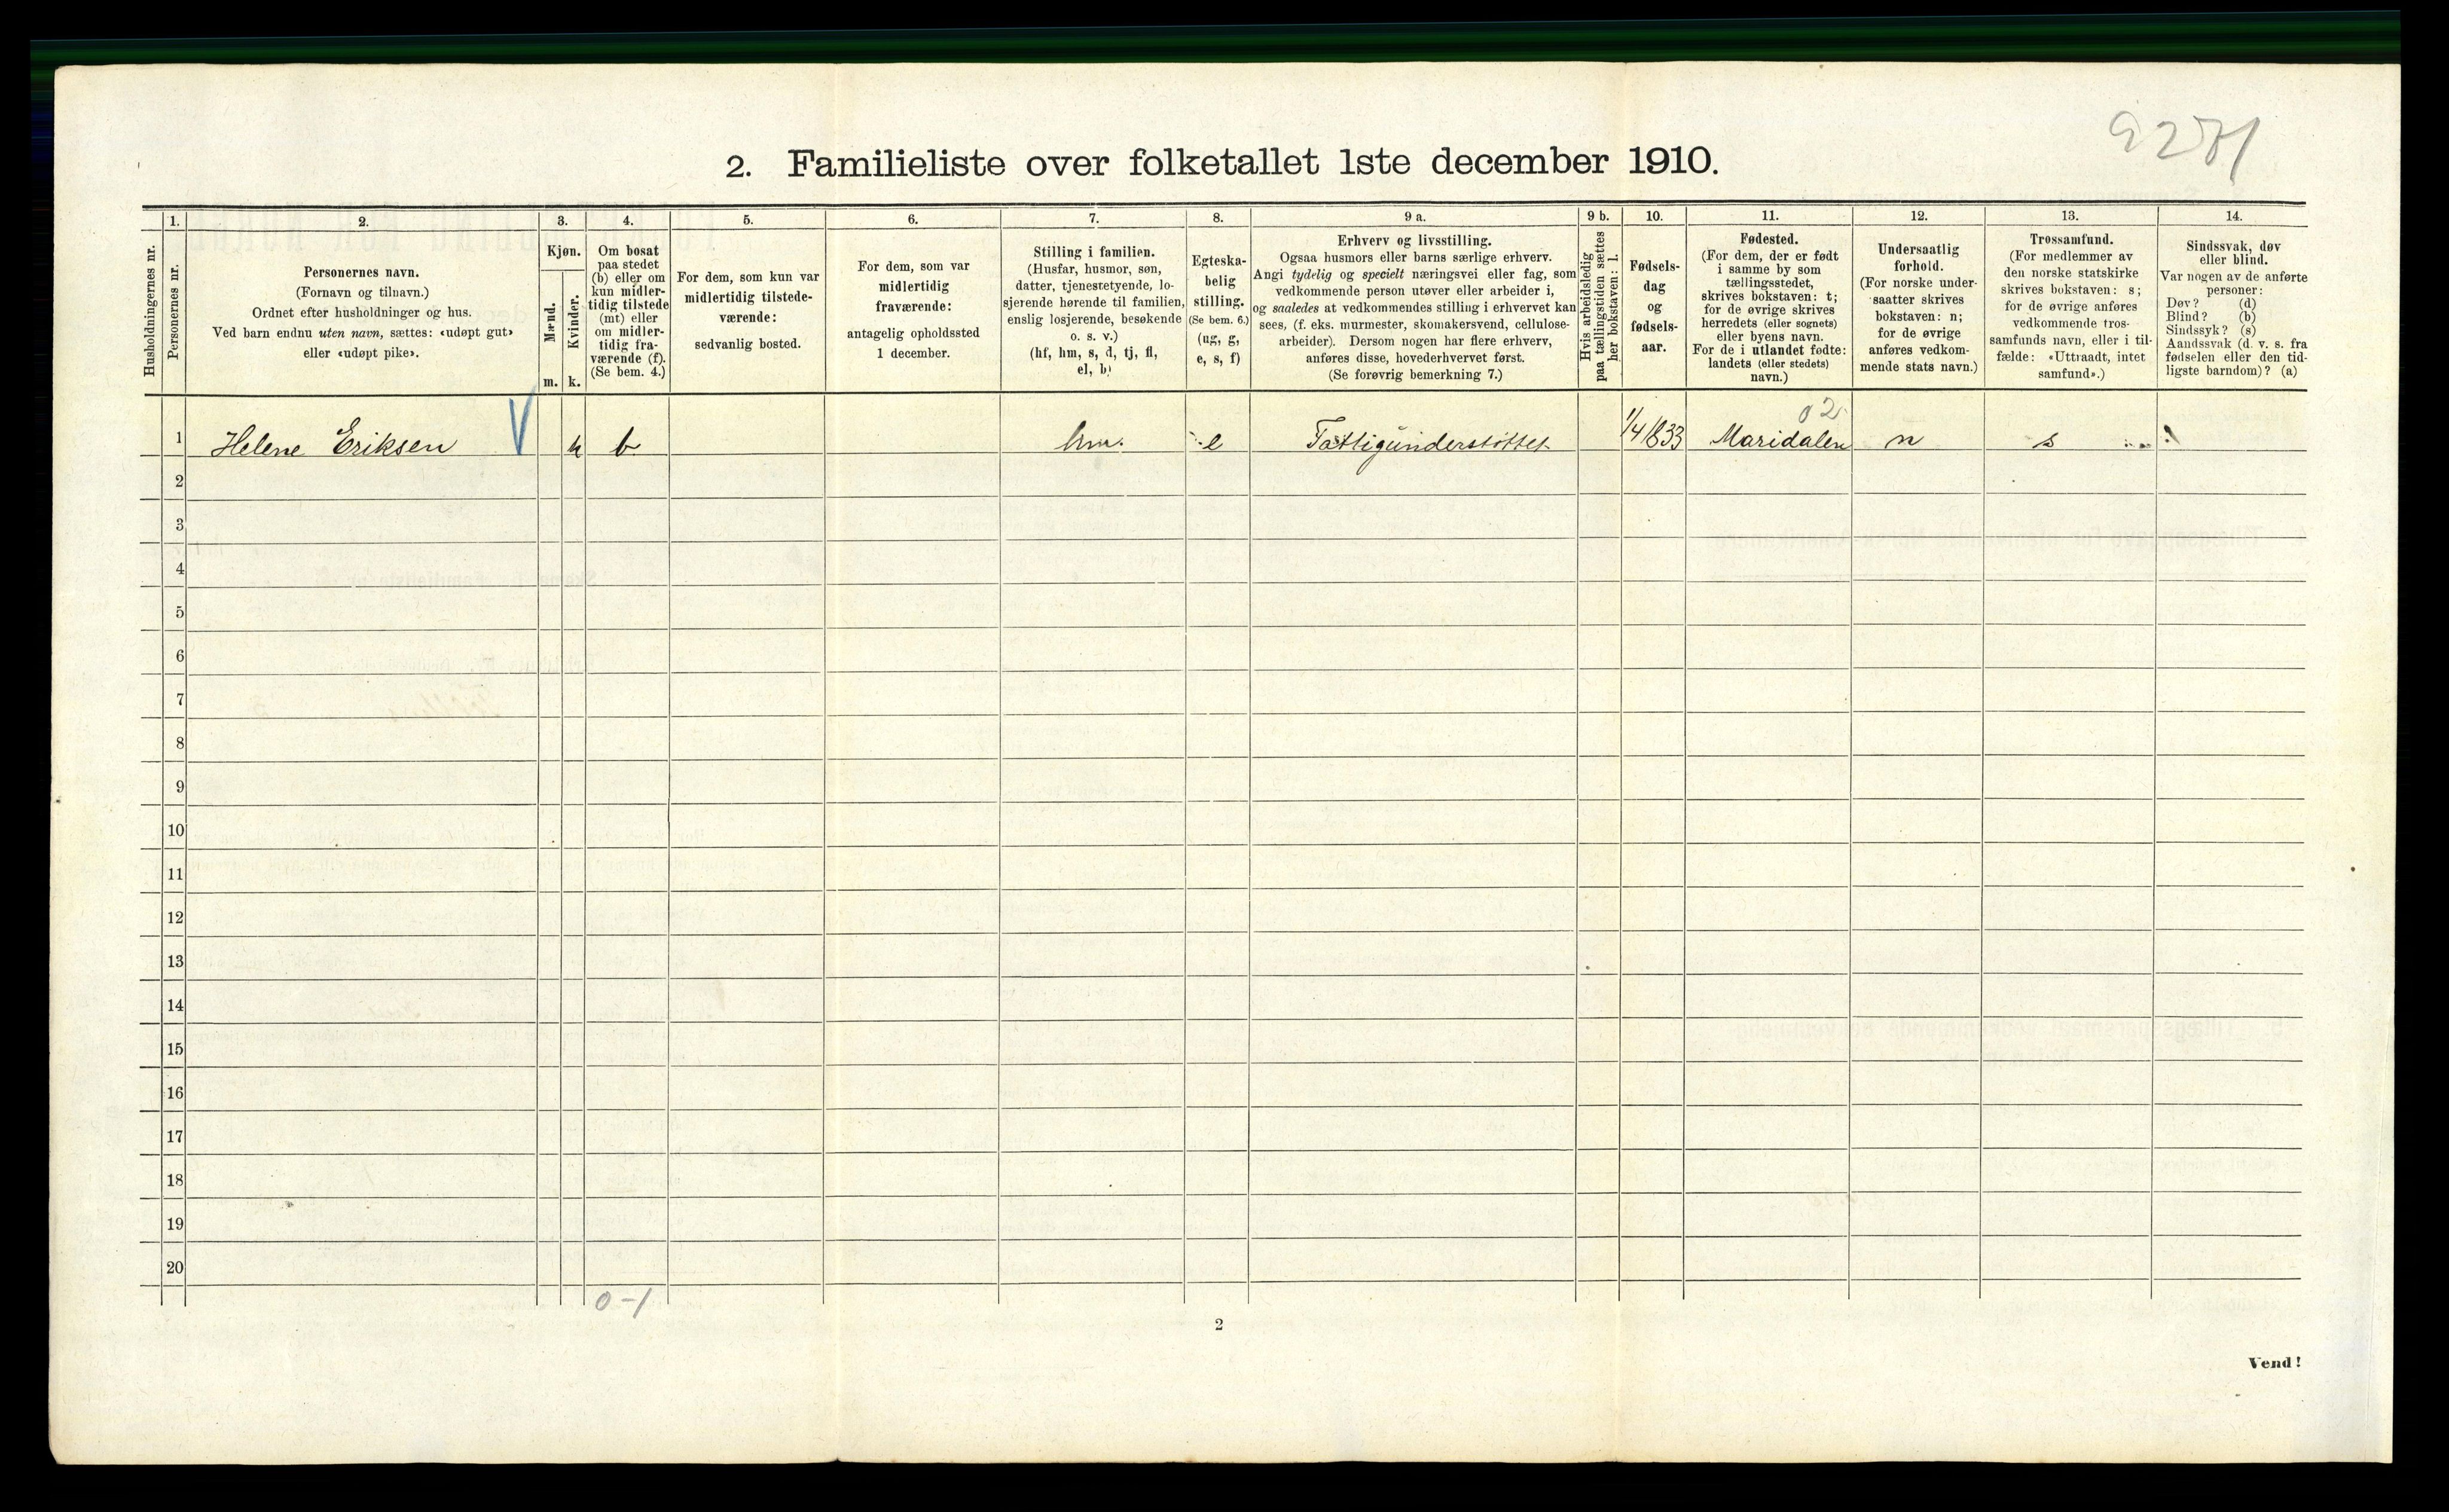 2. Familieliste over folketallet 1ste december 1910.
Husholdningernes nr.
1.
Personernes nr.
2.
Personernes navn.
(Fornavn og tilnavn.)
Ordnet efter husholdninger og hus.
Ved barn endnu uten navn, sættes: «udøpt gut»
eller «udøpt pike».
3.
Kjøn.
Mænd.
Kvinder.
m. k.
4.
Om bosat
paa stedet
(b) eller om
kun midler-
tidig tilstede
(mt) eller
om midler-
tidig fra-
værende (f).
(Se bem. 4.)
5.
For dem, som kun var
midlertidig tilstede-
værende:
sedvanlig bosted.
6.
For dem, som var
midlertidig
fraværende:
antagelig opholdssted
1 december.
7.
Stilling i familien.
(Husfar, husmor, søn,
datter, tjenestetyende, lo-
sjerende hørende til familien,
enslig losjerende, besøkende
o. s. v.)
(hf, hm, s, d, tj, fl,
el, b)
8.
Egteska-
belig
stilling.
(Se bem. 6.)
(ug, g,
e, s, f)
9 a.
Erhverv og livsstilling.
Ogsaa husmors eller barns særlige erhverv.
Angi tydelig og specielt næringsvei eller fag, som
vedkommende person utøver eller arbeider i,
og saaledes at vedkommendes stilling i erhvervet kan
sees, (f. eks. murmester, skomakersvend, cellulose-
arbeider). Dersom nogen har flere erhverv,
anføres disse, hovederhvervet først.
(Se forøvrig bemerkning 7.)
9 b.
Hvis arbeidsledig
paa tællingstiden sættes
her bokstaven: l.
10.
Fødsels-
dag
og
fødsels-
aar.
11.
Fødested.
(For dem, der er født
i samme by som
tællingsstedet,
skrives bokstaven: t;
for de øvrige skrives
herredets (eller sognets)
eller byens navn.
For de i utlandet fødte:
landets (eller stedets)
navn.)
12.
Undersaatlig
forhold.
(For norske under-
saatter skrives
bokstaven: n;
for de øvrige
anføres vedkom-
mende stats navn.)
13.
Trossamfund.
(For medlemmer av
den norske statskirke
skrives bokstaven: s;
for de øvrige anføres
vedkommende tros-
samfunds navn, eller i til-
fælde: «Uttraadt, intet
samfund».)
14.
Sindssvak, døv
eller blind.
Var nogen av de anførte
personer:
Døv? (d)
Blind? (b)
Sindssyk? (s)
Aandssvak (d. v. s. fra
fødselen eller den tid-
ligste barndom)? (a)
02
1 Helene Eriksen k b hm. e Fattigunderstøttet 1/4 1833 Maridalen n s
2
3
4
5
6
7
8
9
10
11
12
13
14
15
16
17
18
19
20
0-1
2
Vend!